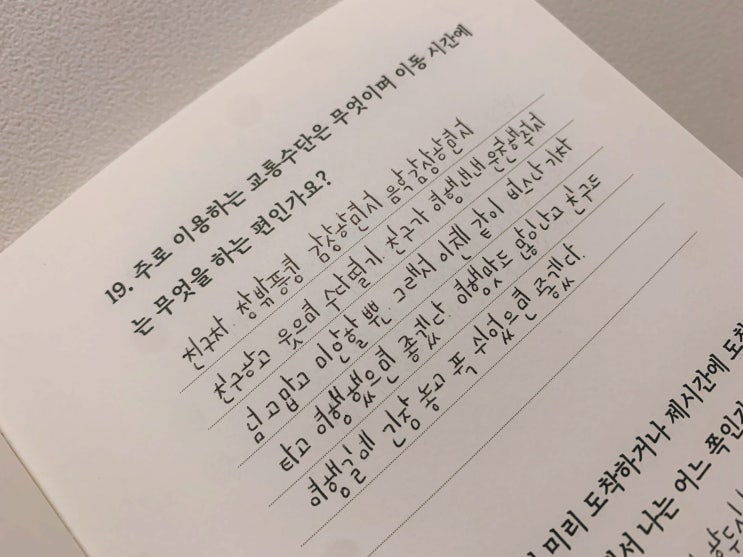 19. 주로 이용하는 교통수단은 무엇이며 이동 시간에
는 무엇을 하는 편인가요?
친구차. 창밖풍경 감상하면서 음악감상하면서
친구랑고 웃으며 수다떨기. 친구가 여행내내 운전해주서
넘 고맙고 미안할 뿐. 그래서 이젠 같이 버스나 기차
타고 여행했으면 좋겠다. 여행맛도 많이나고 친구도
여행길에 긴장 놓고 푹 쉬었으면 좋겠다.
미리 도착하거나 제시간에 도착
서 나는 어느 쪽인가